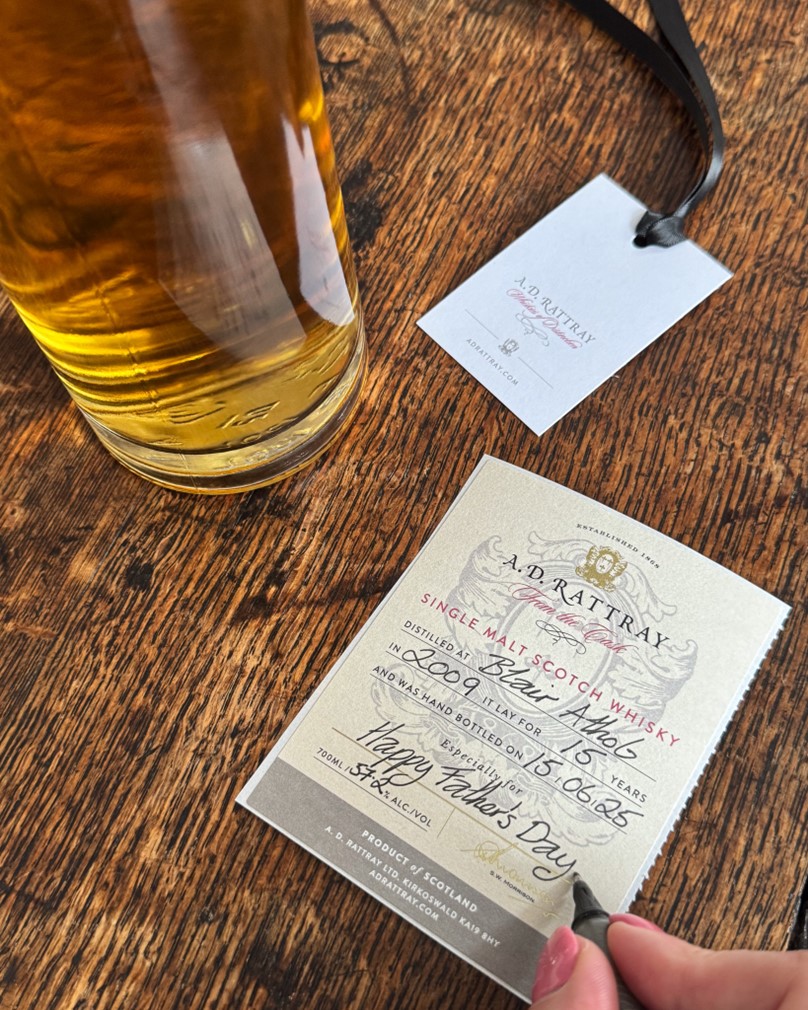 A.D. RATTRAY
Whiskies of Distinction
ADRATTRAY.COM
ESTABLISHED 1868
A.D. RATTRAY
From the Cask
SINGLE MALT SCOTCH WHISKY
DISTILLED AT Blair Athol
IN 2009 IT LAY FOR 15 YEARS
AND WAS HAND BOTTLED ON 15.06.25
Especially for
Happy Father's Day
700ML / 57.2 % ALC./VOL
S.W. MORRISON
PRODUCT of SCOTLAND
A. D. RATTRAY LTD. KIRKOSWALD KA19 8HY
ADRATTRAY.COM